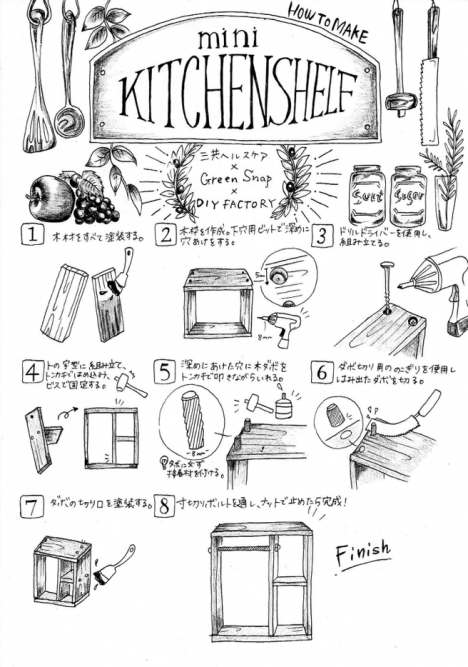 HOW TO MAKE
mini
KITCHENSHELF
三共ヘルスケア
×
Green Snap
×
DIY FACTORY
Salt
Sugar
1 木材をすべて塗装する。
2 木枠を作成。下穴用ビットで深めに
穴あけをする。
5mm
8mm
3 ドリルドライバーを使用し、
組み立てる。
4 トの字型に組み立て、
トンカチではめ込み、
ビスで固定する。
5 深めにあけた穴に木ダボを
トンカチで叩きながらいれる。
8mm
ダボに必ず
接着材を付ける。
6 ダボ切り用ののこぎりを使用し
はみ出たダボを切る。
7 ダボの切り口を塗装する。
8 寸切りボルトを通し、ナットで止めたら完成!
Finish